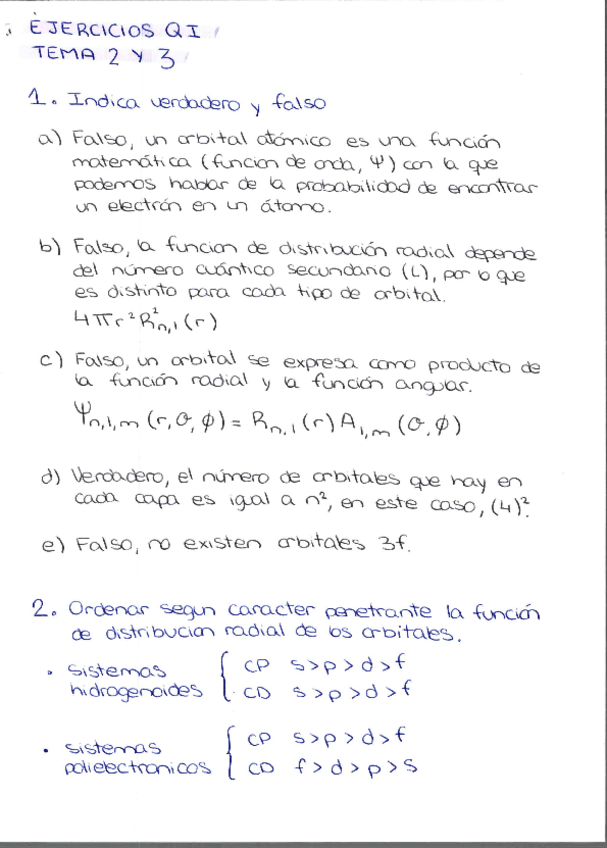 EJERCICIOS QI
TEMA 2 Y 3
1. Indica verdadero y falso
a) Falso, un orbital atómico es una función
matemática (funcion de onda, Ψ) con la que
podemos hablar de la probabilidad de encontrar
un electrón en un átomo.
b) Falso, la funcion de distribución radial depende
del número cuántico secundario (L), por lo que
es distinto para cada tipo de orbital.
4πr²R²n,l(r)
c) Falso, un orbital se expresa como producto de
la función radial y la función angular.
Ψn,l,m (r, θ, ϕ) = Rn,l (r) Al,m (θ, ϕ)
d) Verdadero, el número de orbitales que hay en
cada capa es igual a n², en este caso, (4)².
e) Falso, no existen orbitales 3f.
2. Ordenar segun caracter penetrante la función
de distribucion radial de los orbitales.
• sistemas { CP s>p>d>f
hidrogenoides CD s>p>d>f
• sistemas { CP s>p>d>f
polielectronicos CD f>d>p>s